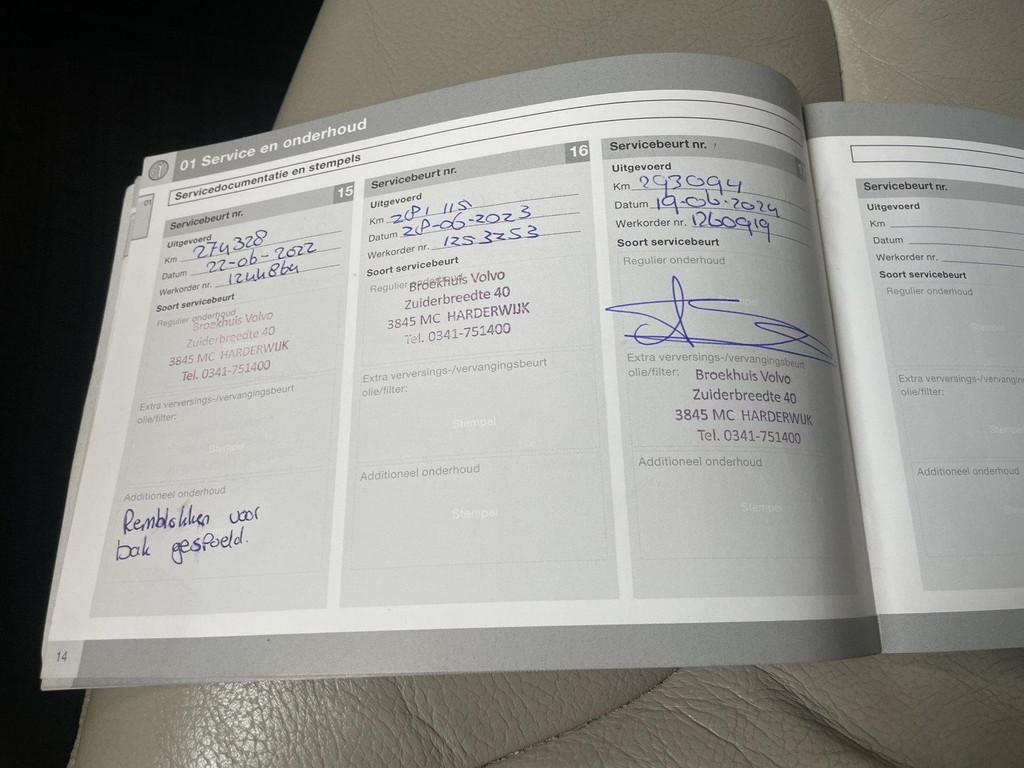 01 Service en onderhoud
01
Servicedocumentatie en stempels
Servicebeurt nr. 15
Uitgevoerd
Km 274328
Datum 22-06-2022
Werkorder nr. 1244864
Soort servicebeurt
Regulier onderhoud
Broekhuis Volvo
Zuiderbreedte 40
3845 MC HARDERWIJK
Tel. 0341-751400
Extra verversings-/vervangingsbeurt
olie/filter:
Stempel
Additioneel onderhoud
Remblokken voor
bak gespoeld.
Servicebeurt nr. 16
Uitgevoerd
Km 281 115
Datum 28-06-2023
Werkorder nr. 1253253
Soort servicebeurt
Regulier onderhoud
Broekhuis Volvo
Zuiderbreedte 40
3845 MC HARDERWIJK
Tel. 0341-751400
Extra verversings-/vervangingsbeurt
olie/filter:
Stempel
Additioneel onderhoud
Stempel
Servicebeurt nr.
Uitgevoerd
Km 293094
Datum 19-06-2024
Werkorder nr. 1260919
Soort servicebeurt
Regulier onderhoud
Stempel
Extra verversings-/vervangingsbeurt
olie/filter:
Broekhuis Volvo
Zuiderbreedte 40
3845 MC HARDERWIJK
Tel. 0341-751400
Additioneel onderhoud
Stempel
Servicebeurt nr.
Uitgevoerd
Km
Datum
Werkorder nr.
Soort servicebeurt
Regulier onderhoud
Stempel
Extra verversings-/vervangin
olie/filter:
Additioneel onderhoud
14